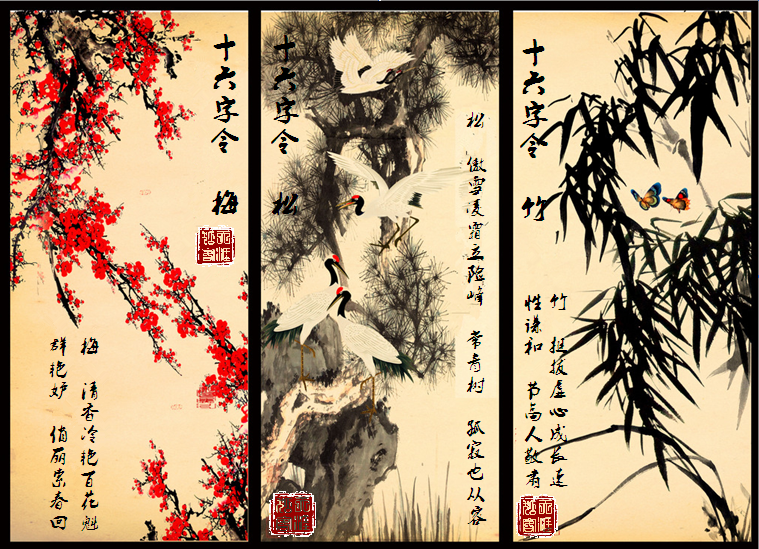 十六字令 梅
梅 清香冷艳百花魁
群艳妒 俏丽索春回
十六字令 松
松 傲雪凌霜立险峰 常青树 孤寂也从容
十六字令 竹
竹 挺拔虚心成长速
性谦和 节高人敬肃